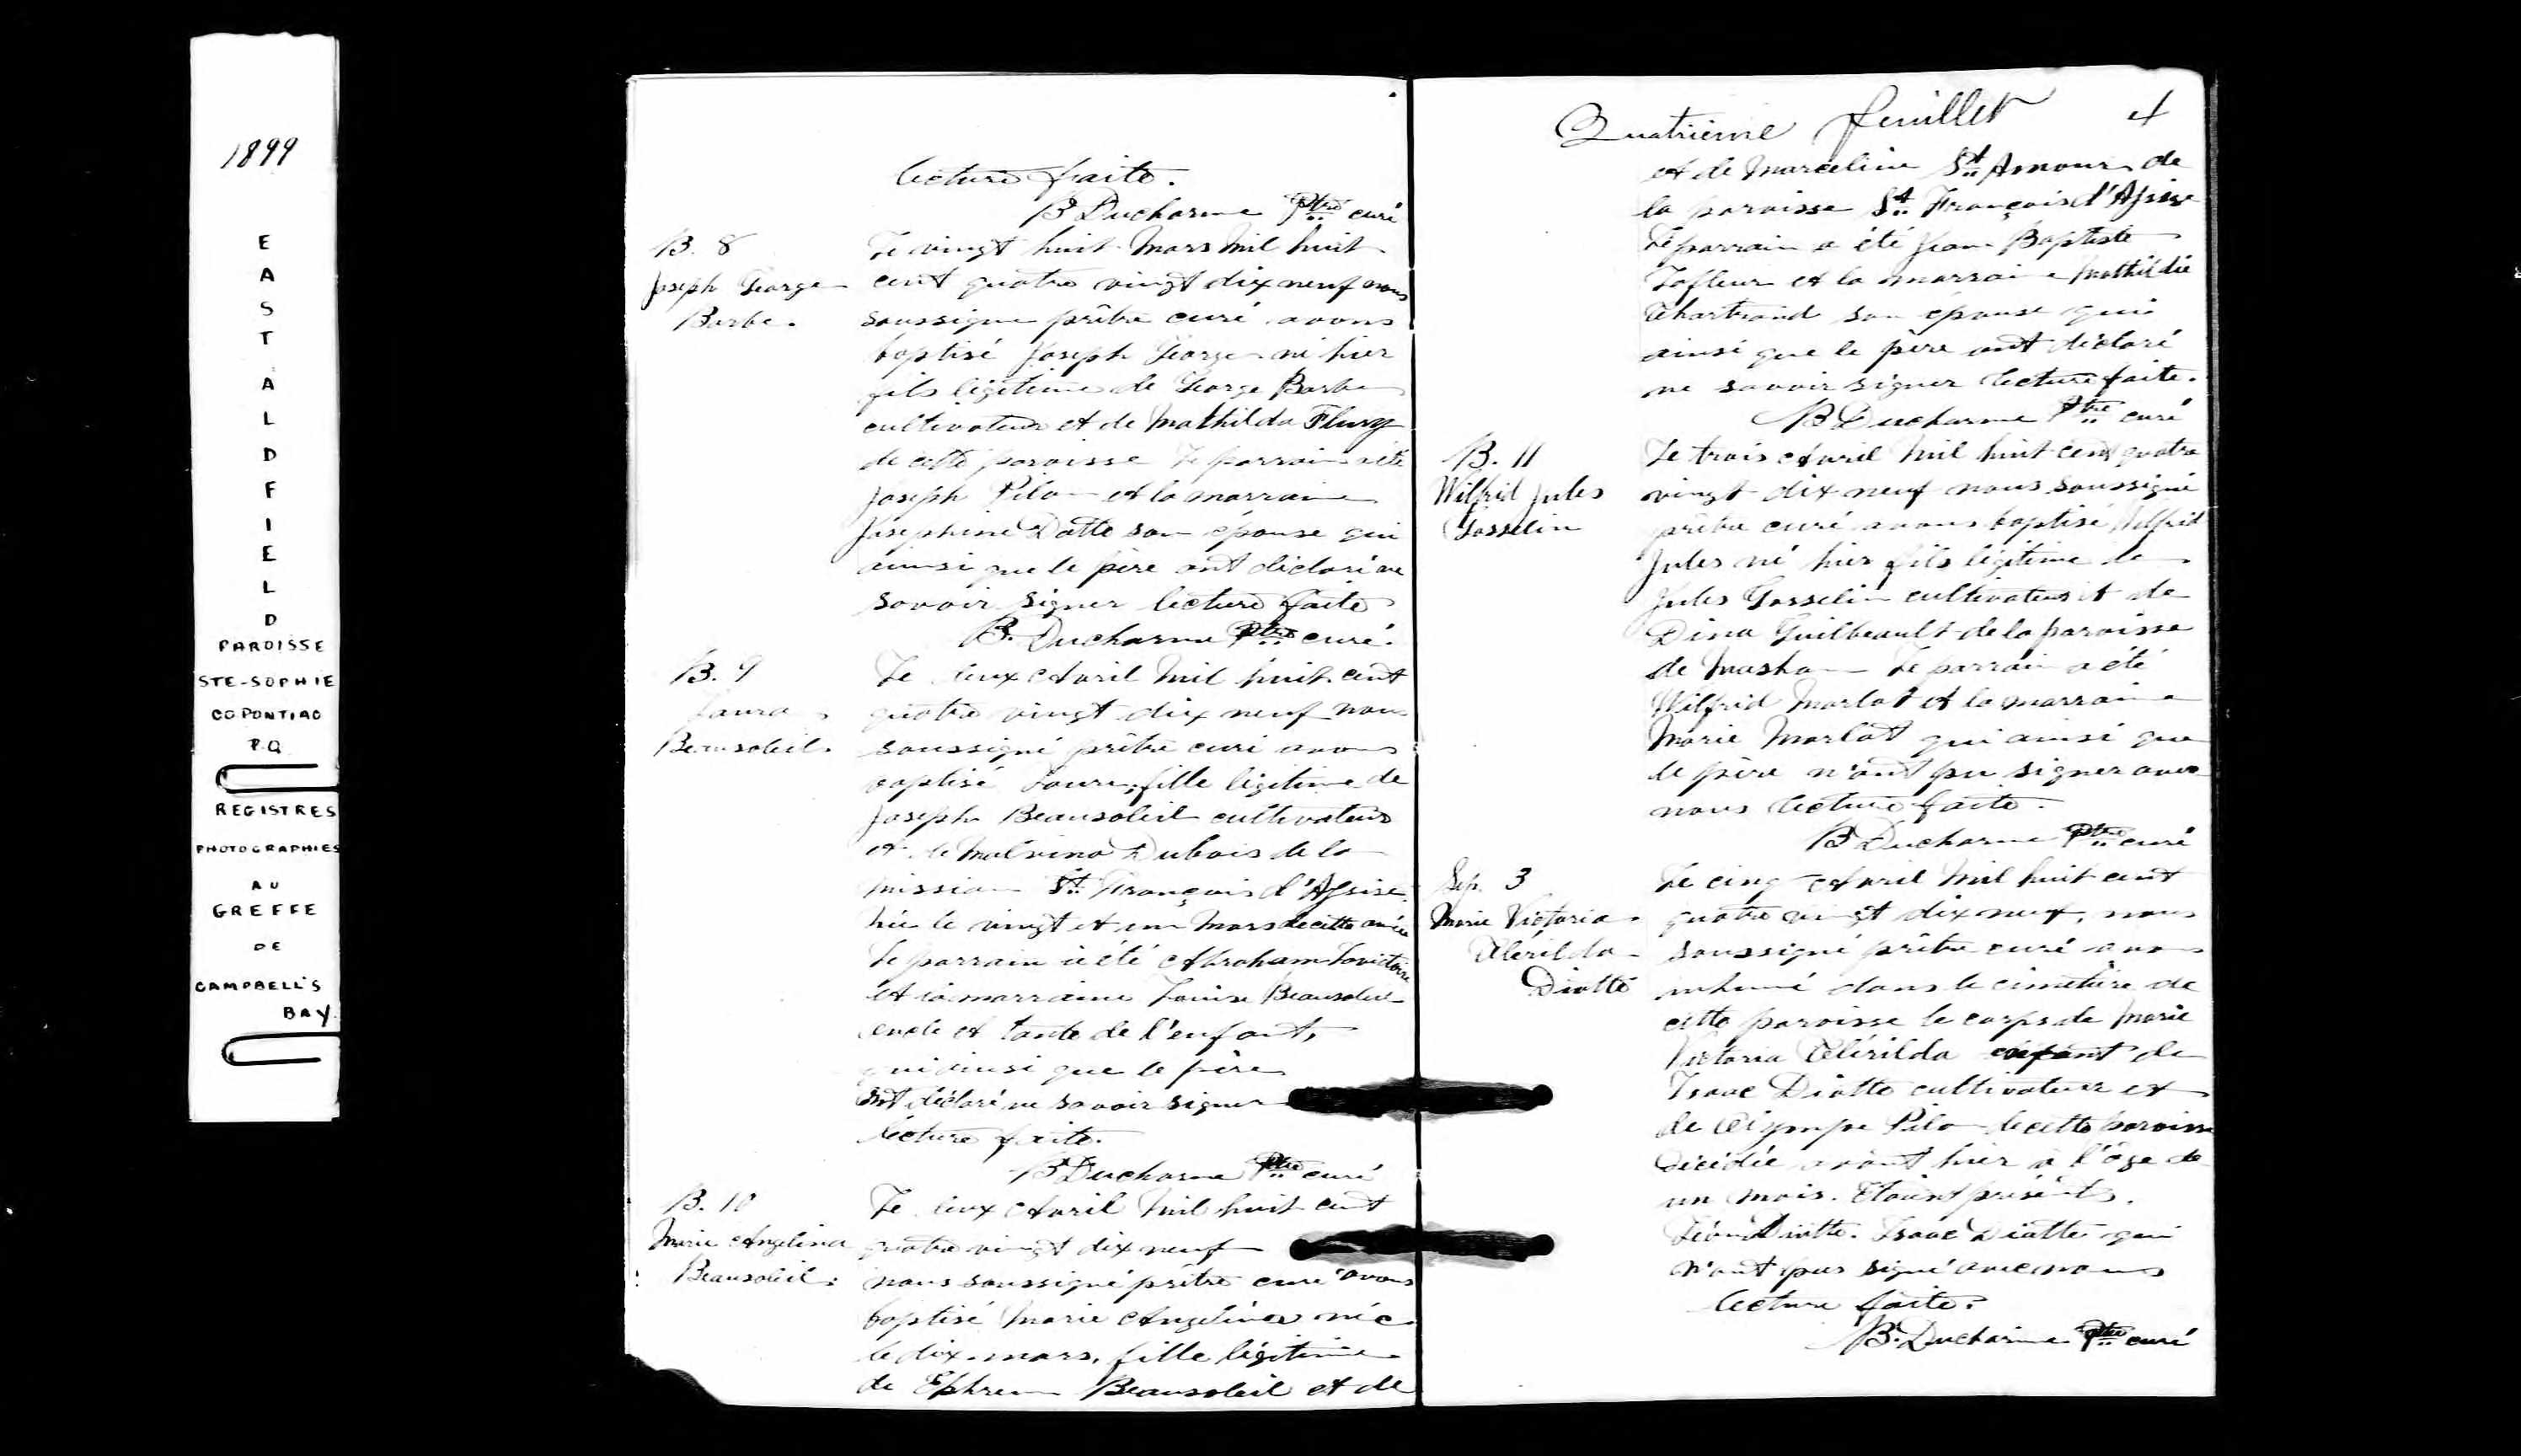 1899
EAST ALDFIELD
PAROISSE
STE-SOPHIE
CO PONTIAC
P.Q.
REGISTRES
PHOTOGRAPHIES
AU
GREFFE
DE
CAMPBELL'S
BAY
lecture faite.
B Ducharme Ptre curé
B. 8
Joseph George
Barbe.
Le vingt huit Mars Mil huit
cent quatre vingt dix neuf nous
soussigné prêtre curé avons
baptisé Joseph George né hier
fils légitime de George Barbe
cultivateur et de Mathilda Flury
de cette paroisse Le parrain a été
Joseph Pilon et la marraine
Josephine Diotte son épouse qui
ainsi que le père ont déclaré ne
savoir signer lecture faite
B. Ducharme Ptre curé.
B. 9
Laura
Beausoleil.
Le deux Avril Mil huit cent
quatre vingt dix neuf nous
soussigné prêtre curé avons
baptisé Laura, fille légitime de
Joseph Beausoleil cultivateur
et de Malvina Dubois de la
mission St François d'Assise
née le vingt et un Mars de cette année
Le parrain a été Abraham
et la marraine Louise Beausoleil
oncle et tante de l'enfant,
qui ainsi que le père
ont déclaré ne savoir signer
lecture faite.
B Ducharme Ptre curé
B. 10
Marie Angelina
Beausoleil.
Le deux Avril Mil huit cent
quatre vingt dix neuf
nous soussigné prêtre curé avons
baptisé Marie Angelina née
le dix mars, fille légitime
de Ephrem Beausoleil et de
Quatrième feuillet 4
et de Marceline St Amour de
la paroisse St François d'Assise
Le parrain a été Jean Baptiste
Lafleur et la marraine Mathildie
Chartrand son épouse qui
ainsi que le père ont déclaré
ne savoir signer lecture faite.
B Ducharme Ptre curé
B. 11
Wilfrid Jules
Gosselin
Le trois Avril Mil huit cent quatre
vingt dix neuf nous soussigné
prêtre curé avons baptisé Wilfrid
Jules né hier fils légitime de
Jules Gosselin cultivateur et de
Dina Guilbeault de la paroisse
de Masham Le parrain a été
Wilfrid Marlot et la marraine
Marie Marlot qui ainsi que
le père n'ont pu signer avec
nous lecture faite.
B Ducharme Ptre curé
Sep. 3
Marie Victoria
Clérilda
Diotte
Le cinq Avril Mil huit cent
quatre vingt dix neuf, nous
soussigné prêtre curé avons
inhumé dans le cimetière de
cette paroisse le corps de Marie
Victoria Clérilda enfant de
Isaac Diotte cultivateur et
de Olympe Pilon de cette paroisse
décédée avant hier à l'âge de
un mois. Etaient présents.
Diotte. Isaac Diotte qui
n'ont pas signé avec nous
lecture faite.
B. Ducharme Ptre curé